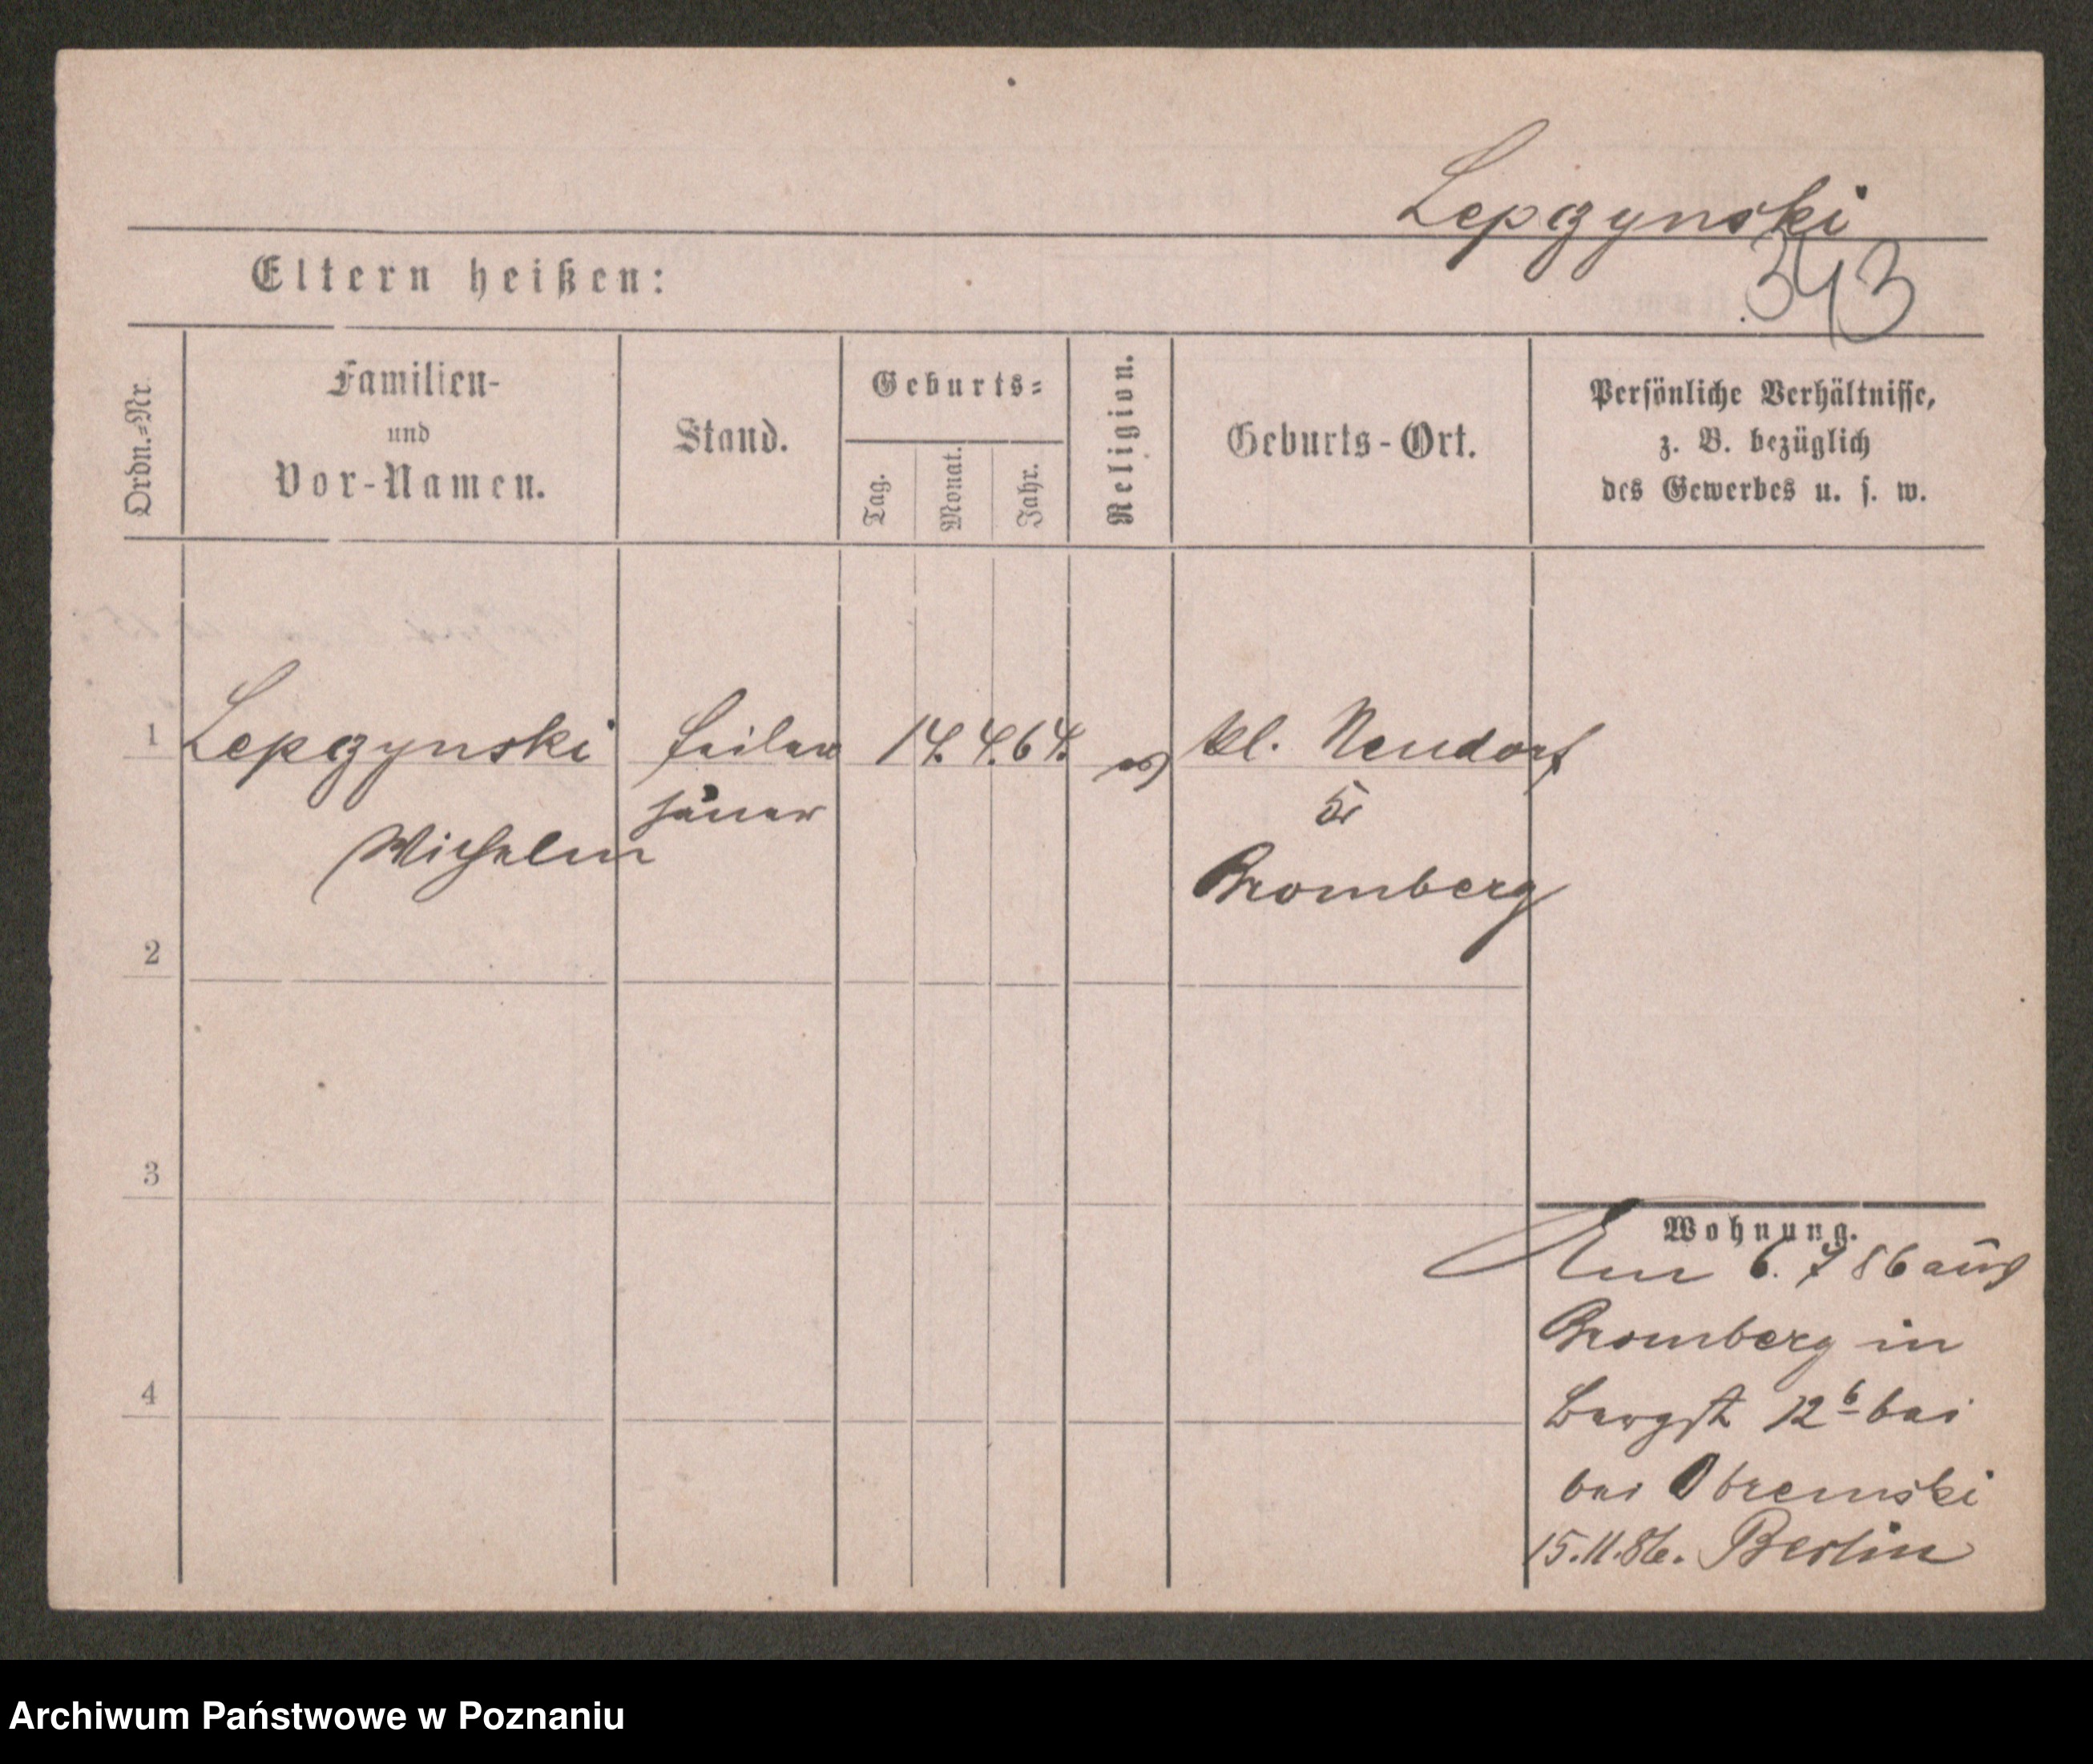 Lepczynski
343
Eltern heißen:
Ordn.=Nr.
Familien-
und
Vor-Namen.
Stand.
Geburts=
Tag.
Monat.
Jahr.
Religion.
Geburts-Ort.
Persönliche Verhältnisse,
z. B. bezüglich
des Gewerbes u. s. w.
1 Lepczynski feilen 14. 4. 64. ev Kl. Neudorf
hauer Kr
Wilhelm Bromberg
2
3
4
Wohnung.
Am 6. 7 86 aus
Bromberg in
Bergst 12 b bei
bei Obremski
15.11.86. Berlin
Archiwum Państwowe w Poznaniu